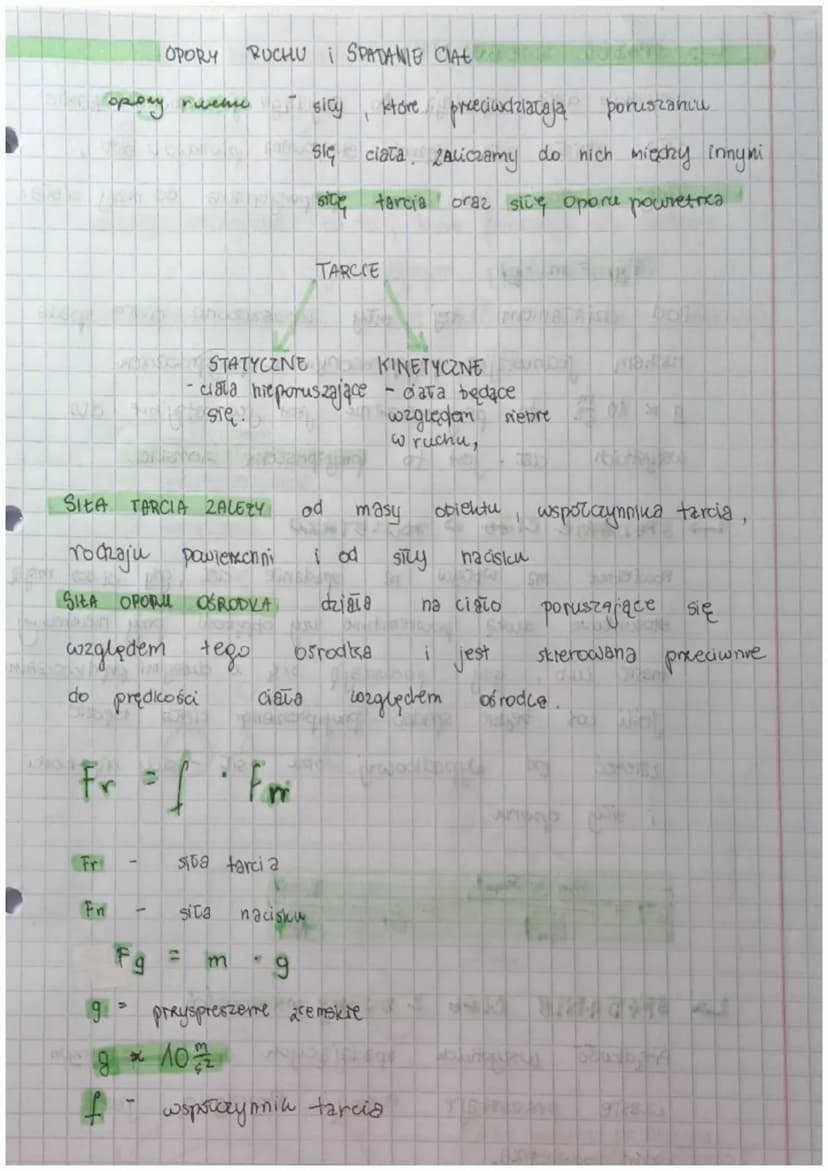 OPORY RUCHU i SPADANIE CIAŁ
opory ruchu - siły, które przeciwdziałają poruszaniu
się ciała. zaliczamy do nich między innymi
siłę tarcia oraz siłę oporu powietrza
TARCIE
STATYCZNE KINETYCZNE
- ciała nieporuszające - ciała będące
się. względem siebie
w ruchu,
SIŁA TARCIA ZALEŻY od masy obiektu, współczynnika tarcia,
rodzaju powierzchni i od siły nacisku
SIŁA OPORU OŚRODKA działa na ciało poruszające się
względem tego ośrodka i jest skierowana przeciwnie
do prędkości ciała względem ośrodka.
Fr = f · Fn
Fr - siła tarcia
Fn - siła nacisku
Fg = m · g
g = przyspieszenie ziemskie
g ≈ 10 m/s²
f - współczynnik tarcia